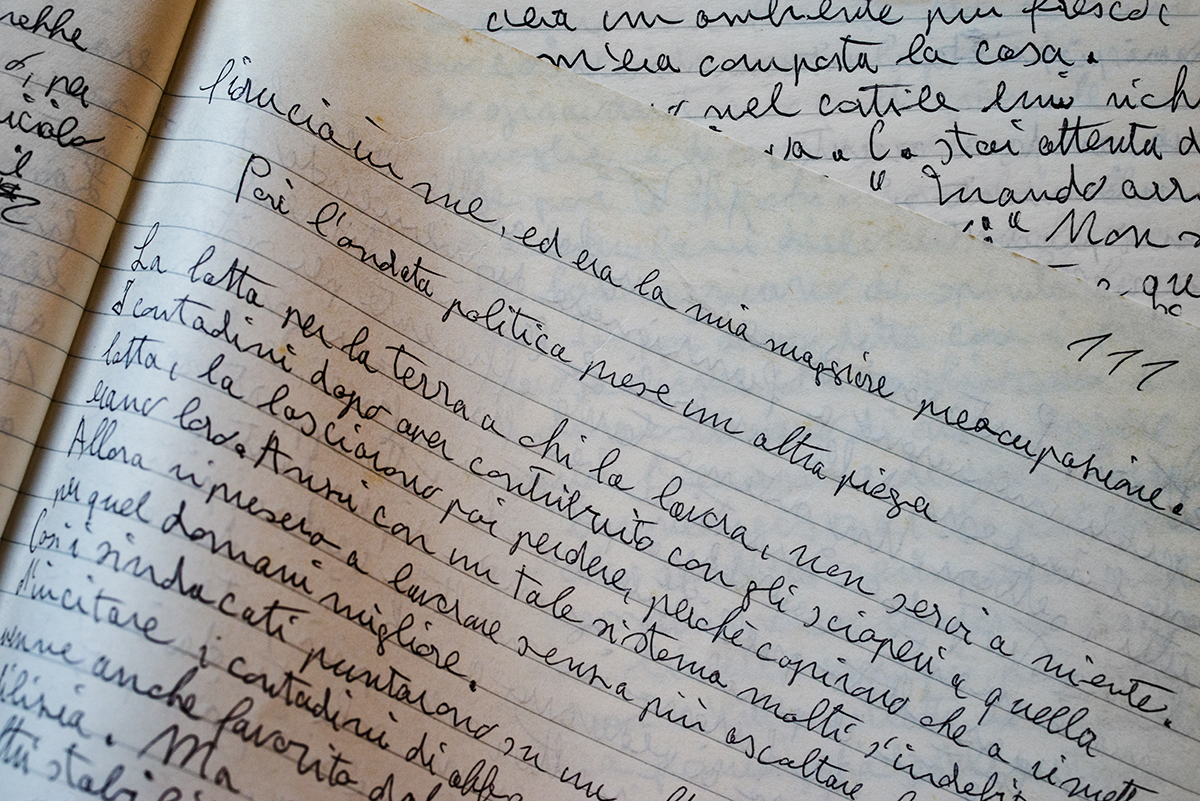 111
fiducia in me, ed era la mia maggiore preocupazione.
Però l'ondata politica prese un altra piega
La lotta per la terra a chi la lavora, non servi a niente.
I contadini dopo aver contribuito con gli scioperi a quella
lotta, la lasciarono poi perdere, perchè capirono che a rimett
erano loro. Anzi con un tale sistema molti s'indebit
Allora ripresero a lavorare senza più ascoltare
per quel domani migliore.
Così i sindacati puntarono su un
d'incitare i contadini di abb
venne anche favorito da
dilizia. Ma
rebbe
per
icolo
il
un ambiente più fresco;
m'era comparta la casa.
nel cortile
stai attenta
" Quando arr
" Non
que